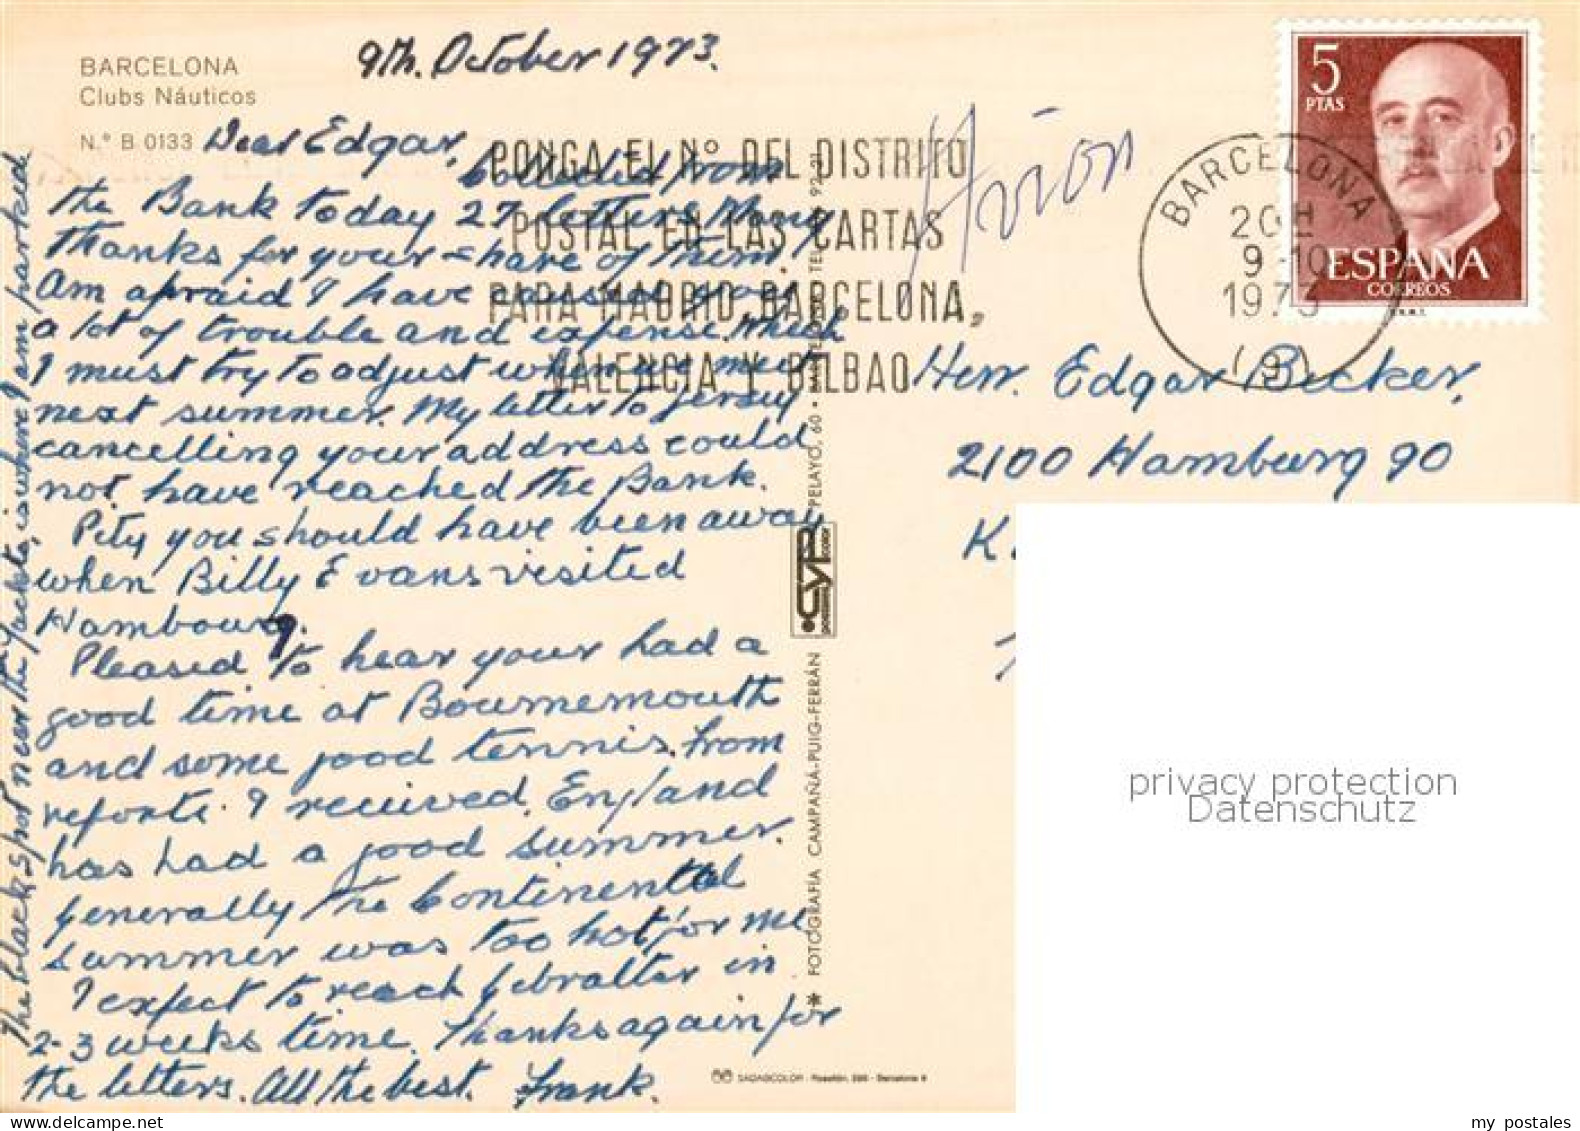 BARCELONA
Clubs Náuticos
N.º B 0133
9th. October 1973.
Dear Edgar,
Collected from
the Bank today 27 letters Many
thanks for your share of them
Am afraid I have caused you
a lot of trouble and expense. which
I must try to adjust when we meet
next summer. My letter to Jersey
cancelling your address could
not have reached the Bank.
Pity you should have been away
when Billy Evans visited
Hambourg.
Pleased to hear your had a
good time at Bournemouth
and some good tennis. From
reports I received, England
has had a good summer.
Generally the Continental
summer was too hot for me
I expect to reach Gibralter in
2-3 weeks time. Thanks again for
the letters. All the best. Frank.
The black spot near the Yachts, is where I am parked
PONGA EL Nº DEL DISTRITO
POSTAL EN LAS CARTAS
PARA MADRID, BARCELONA,
VALENCIA Y BILBAO
Avion
BARCELONA
20H
9-10
1973
(9)
5
PTAS
ESPAÑA
CORREOS
F.N.M.T.
Herr. Edgar Becker,
2100 Hamburg 90
K
privacy protection
Datenschutz
CYP
* FOTOGRAFÍA CAMPAÑÁ-PUIG-FERRÁN
PELAYO, 60 •
SADAGCOLOR - Rosellón, 298 - Barcelona 9
my postales